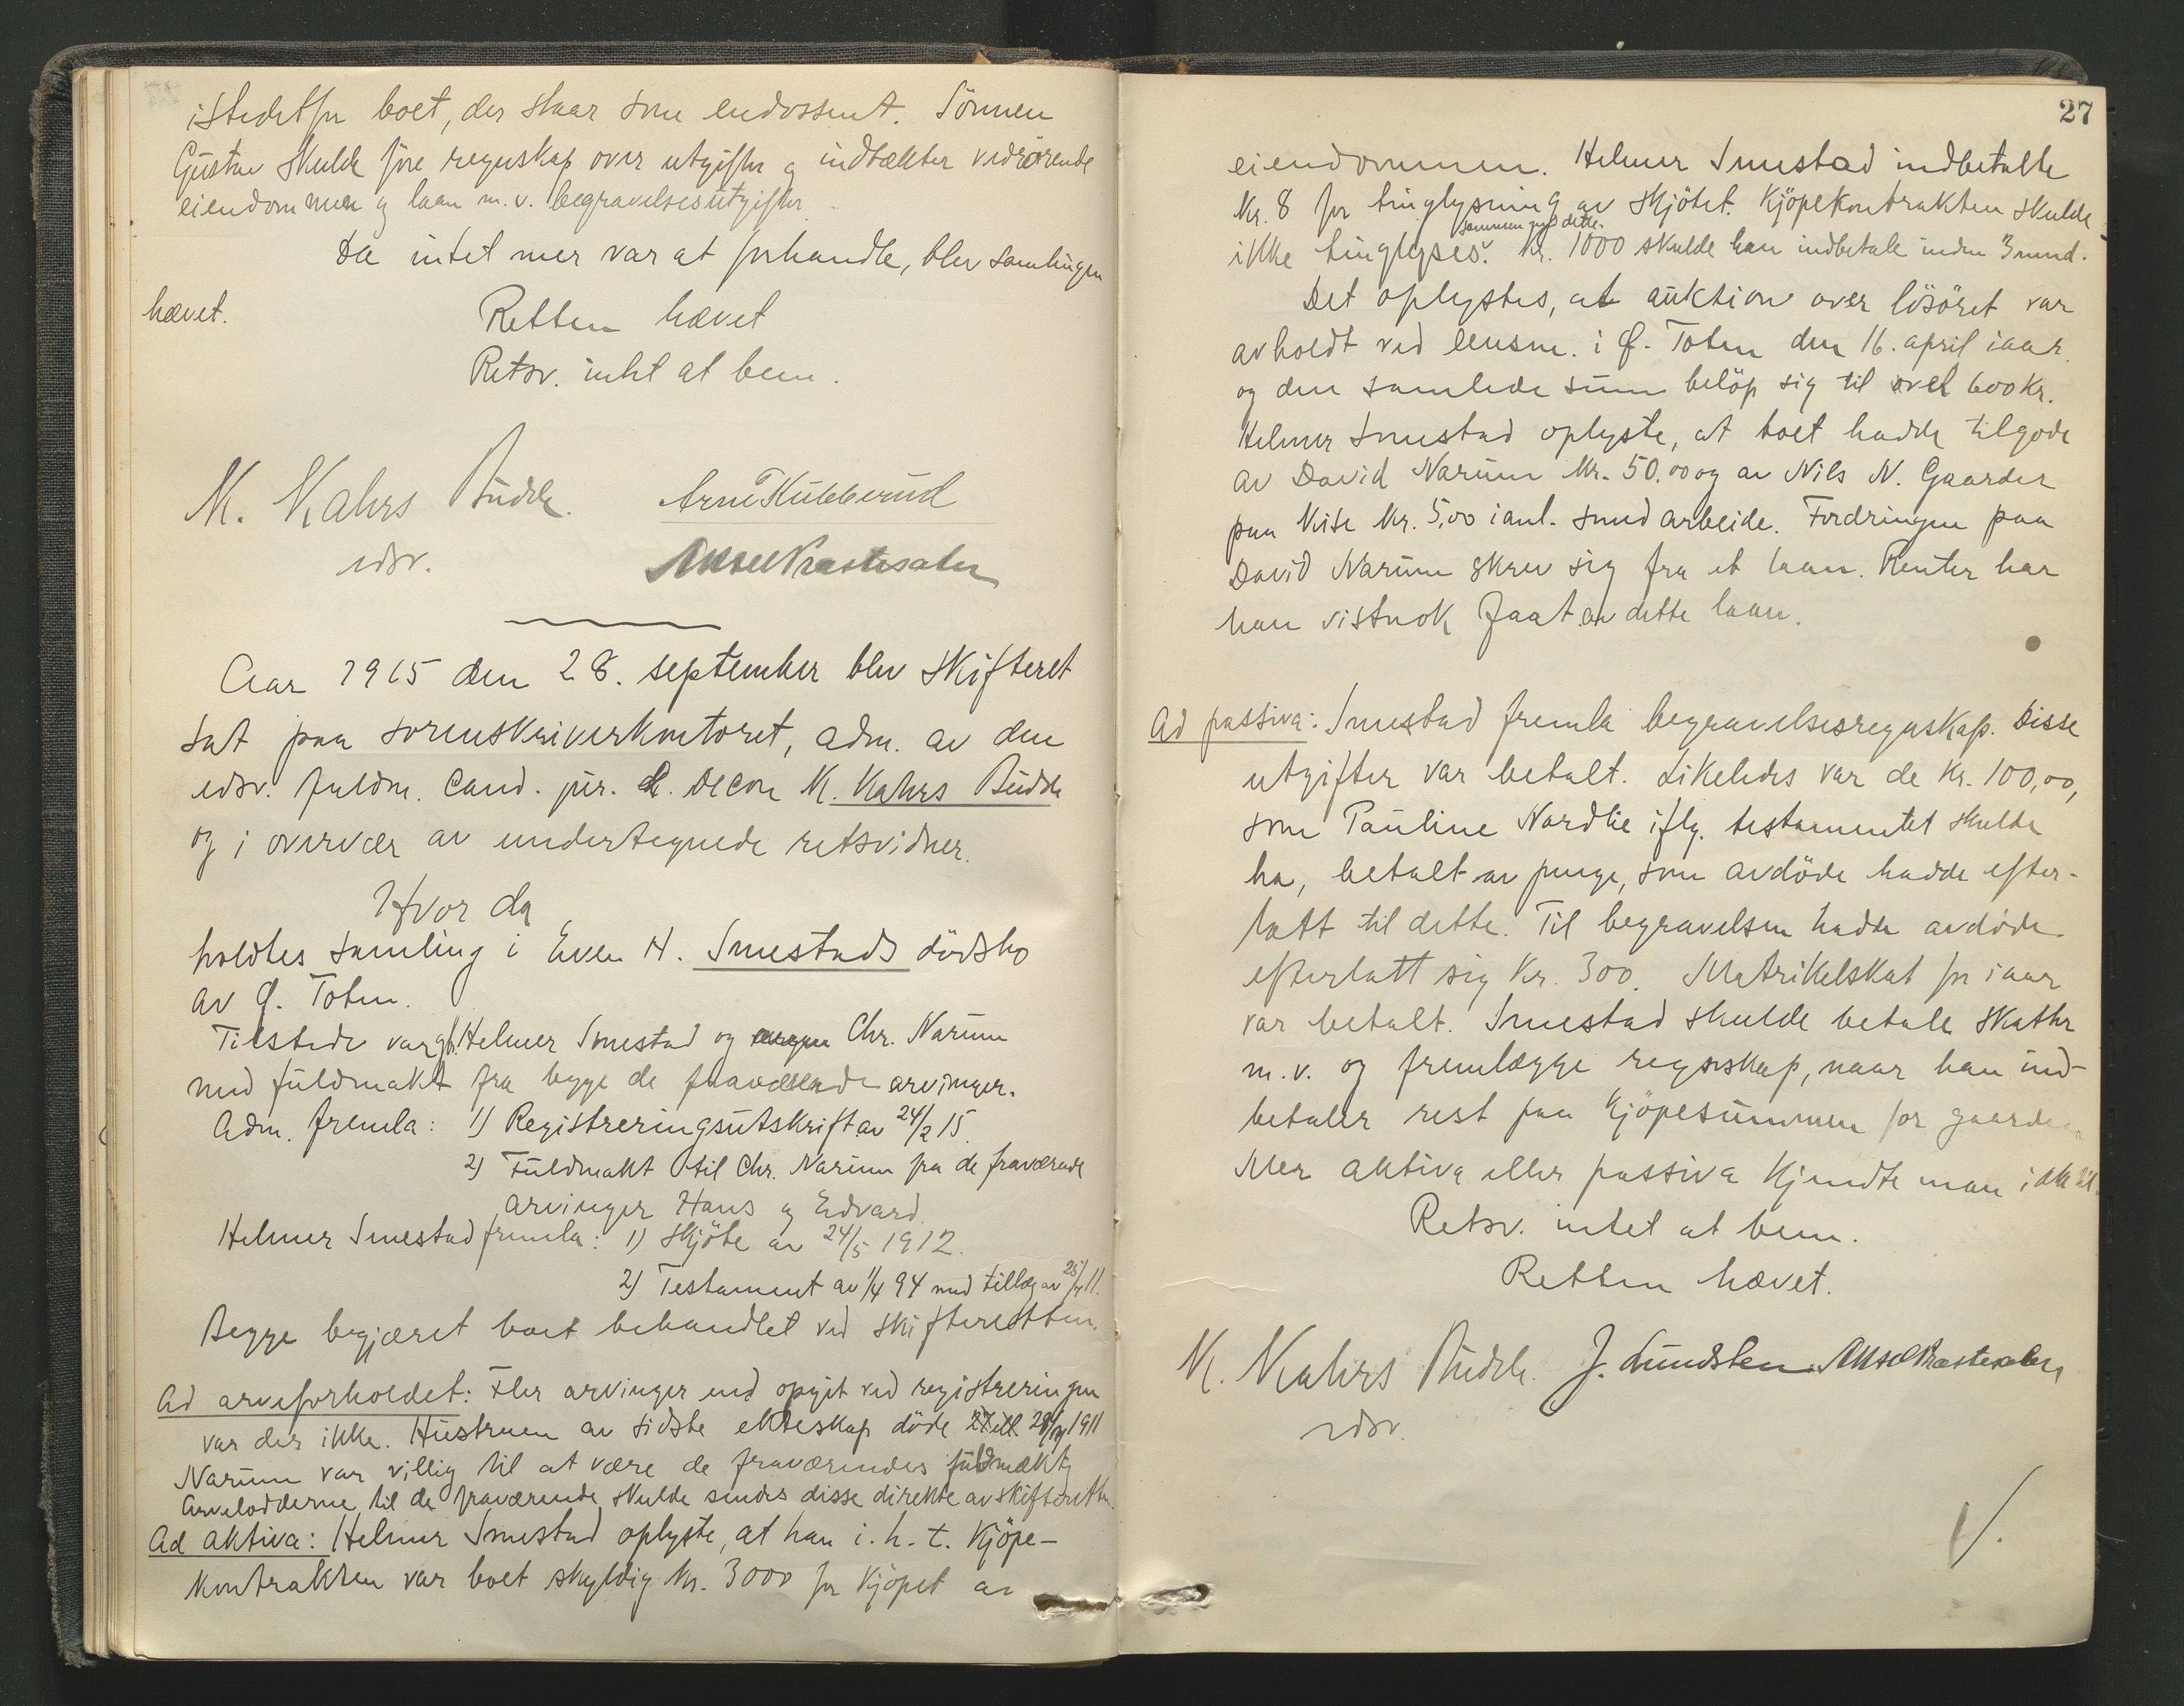 istedetfor boet, der staar som endossent. Sönnen
Gustav skulde före regnskap over utgifter og indtækter vedrörende
eiendommen og laan m. v. begravelsesutgifter.
Da intet mer var at forhandle, blev samlingen
hævet.
Retten hævet
Retsv. intet at bem.
K. Kahrs Budde. Arne Kubberud
edsv. Aksel Præstesæter
Aar 1915 den 28. september blev skifteret
sat paa sorenskriverkontoret, adm. av den
edsv. fuldm. cand. jur. & oecon K. Kahrs Budde
og i overvær av undertegnede retsvidner.
Hvor da
holdtes samling i Even H. Smestads dödsbo
av Ø. Toten.
Tilstede var gb. Helmer Smestad og Chr. Narum
med fuldmakt fra begge de fraværende arvinger.
Adm. fremla: 1) Registreringsutskrift av 24/2 15.
2) Fuldmakt til Chr. Narum fra de fraværende
arvinger Hans og Edvard.
Helmer Smestad fremla: 1) Skjöte av 24/5 1912.
2) Testament av 1/4 94 med tillæg av 25/4 11.
Begge begjæret boet behandlet ved skifteretten.
Ad arveforholdet: Fler arvinger end opgit ved registreringen
var der ikke. Hustruen av sidste ekteskap döde 1911
Narum var villig til at være de fraværendes fuldmæktig
Arvelodderne til de fraværende skulde sendes disse direkte av skifteretten.
Ad aktiva: Helmer Smestad oplyste, at han i. h. t. kjöpe-
kontrakten var boet skyldig kr. 3000 for kjöpet av
27
eiendommen. Helmer Smestad indbetalte
kr. 8 for tinglysning av skjötet. Kjöpekontrakten skulde
sammen med dette.
ikke tinglyses. Kr. 1000 skulde han indbetale inden 3 mnd.
Det oplystes, at auktion over lösöret var
avholdt ved lensm. i Ø. Toten den 16. april iaar.
og den samlede sum belöp sig til vel 600 kr.
Helmer Smestad oplyste, at boet hadde tilgode
av David Narum kr. 50.00 og av Nils N. Gaarder
paa Kise kr. 5,00 i anl. smedarbeide. Fordringen paa
David Narum skrev sig fra et laan. Renter har
han vistnok faat av dette laan.
Ad passiva: Smestad fremla begravelsesregnskap. Disse
utgifter var betalt. Likeledes var de kr. 100,00,
som Pauline Nordlie iflg. testamentet skulde
ha, betalt av penge, som avdöde hadde efter-
latt til dette. Til begravelsen hadde avdöde
efterlatt sig kr. 300. Matrikelskat for iaar
var betalt. Smestad skulde betale skatter
m. v. og fremlægge regnskap, naar han ind-
betaler rest paa kjöpesummen for gaarden
Mer aktiva eller passiva kjendte man ikke til.
Retsv. intet at bem.
Retten hævet.
K. Kahrs Budde. J. Lundsten Aksel Præstesæter
edsv.